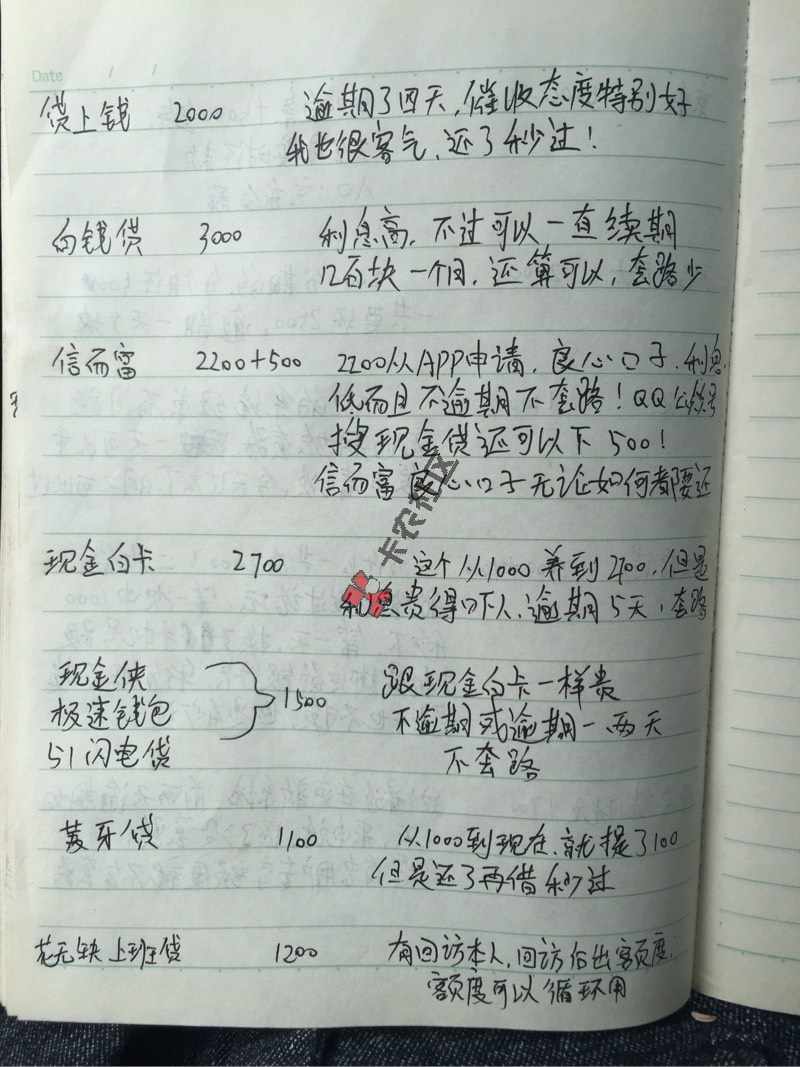 Date / /
贷上钱 2000 逾期了四天，催收态度特别好
我也很客气，还了秒过！
向钱贷 3000 利息高，不过可以一直续期
几百块一个月，还算可以，套路少
信而富 2200+500 2200从APP申请，良心口子，利息
低而且不逾期不套路！QQ公众号
搜现金贷还可以下500！
信而富良心口子无论如何都要还
现金白卡 2700 这个从1000养到2700，但是
利息贵得吓人，逾期5天，套路
现金侠
极速钱包 1500 跟现金白卡一样贵
51闪电贷 不逾期或逾期一两天
不套路
牙贷 1100 从1000到现在，就提了100
但是还了再借秒过
花无缺上班贷 1200 有回访本人，回访后出额度，
额度可以循环用
卡农社区